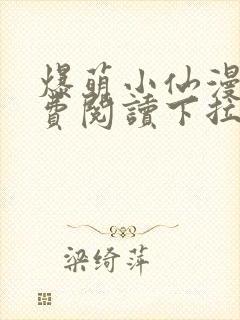 爆萌小仙漫
費閱讀下拉
梁绮萍